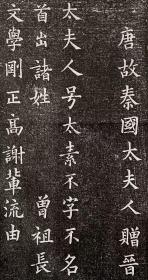 唐故秦國太夫人贈晉
太夫人号太素不字不名
首出諸姓　曾祖長
文學剛正高謝輩流由